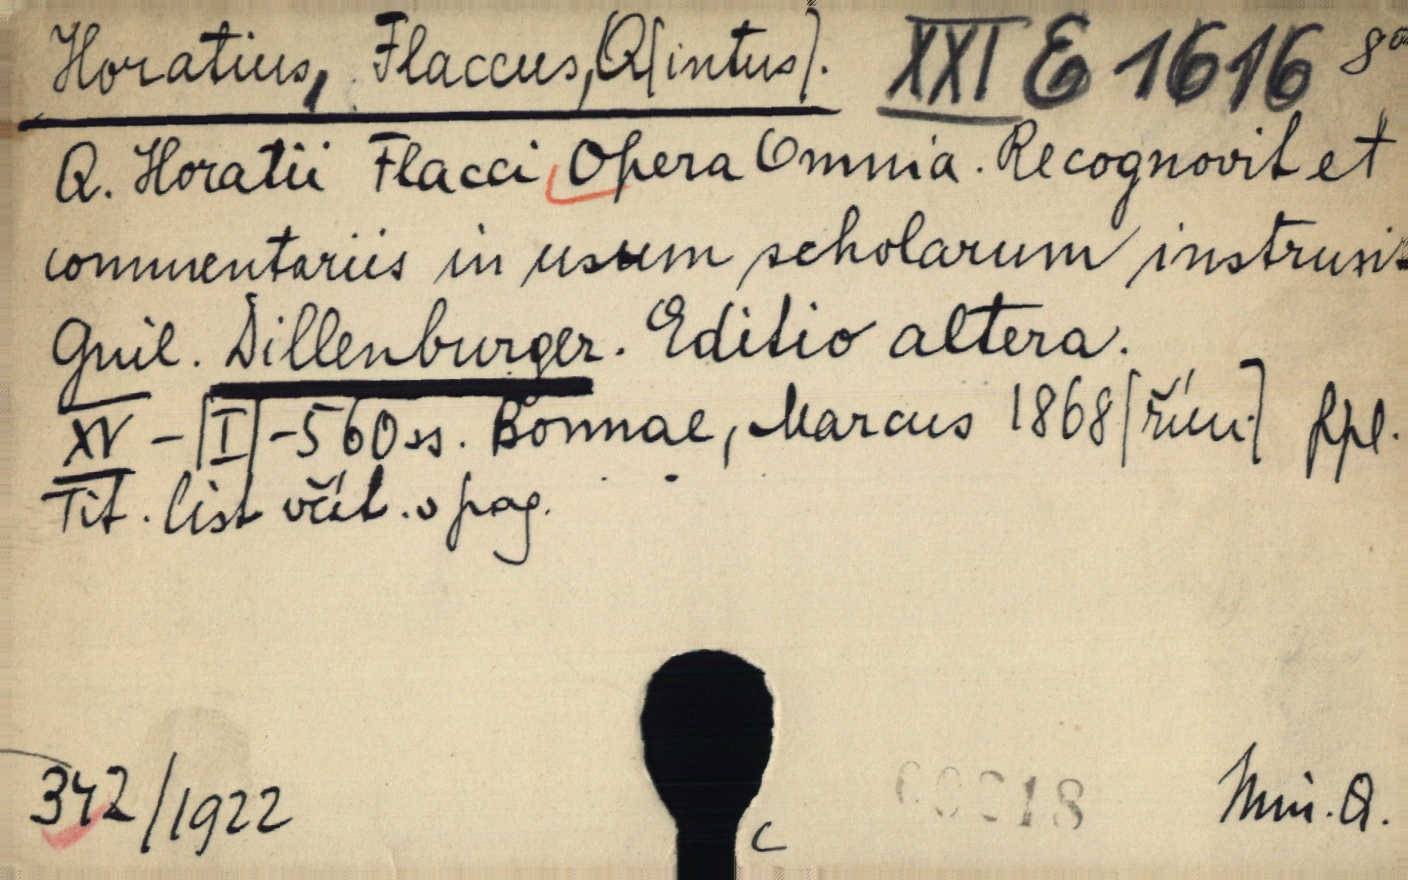 Horatius, Flaccus, Q[intus]. XXI E 1616 8°
Q. Horatii Flacci Opera Omnia. Recognovit et
commentariis in usum scholarum instruxit
Guil. Dillenburger. Editio altera.
XV - [I] - 560 ss. Bonnae, Marcus 1868 [řím.] ppl.
Tit. list včít. v pag.
342/1922 Min. Q.
c